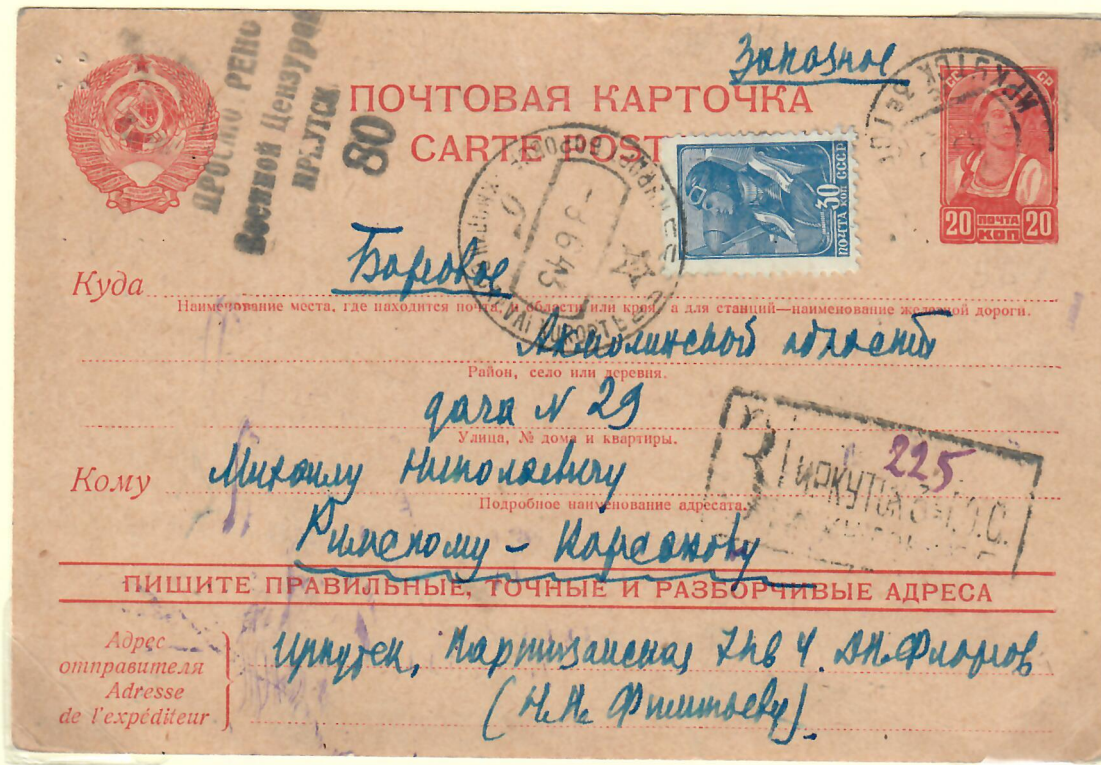 Заказное
ПРОСМО РЕНО
Военной Цензурой
ИРКУТСК
80
ПОЧТОВАЯ КАРТОЧКА
CARTE POST
СС СР
20 ПОЧТА 20
КОП
30
ПОЧТА КОП СССР
6 43
Куда Боровое
Наименование места, где находится почта, и области или края, а для станций—наименование железной дороги.
Акмолинской области
Район, село или деревня.
дача N 29
Улица, № дома и квартиры.
Кому Михаилу Николаевичу
Подробное наименование адресата.
Римскому-Корсакову
З ИРКУТСК 3
225
ПИШИТЕ ПРАВИЛЬНЫЕ, ТОЧНЫЕ И РАЗБОРЧИВЫЕ АДРЕСА
Адрес
отправителя
Adresse
de l'expéditeur
Иркутск, Партизанская кв 4.